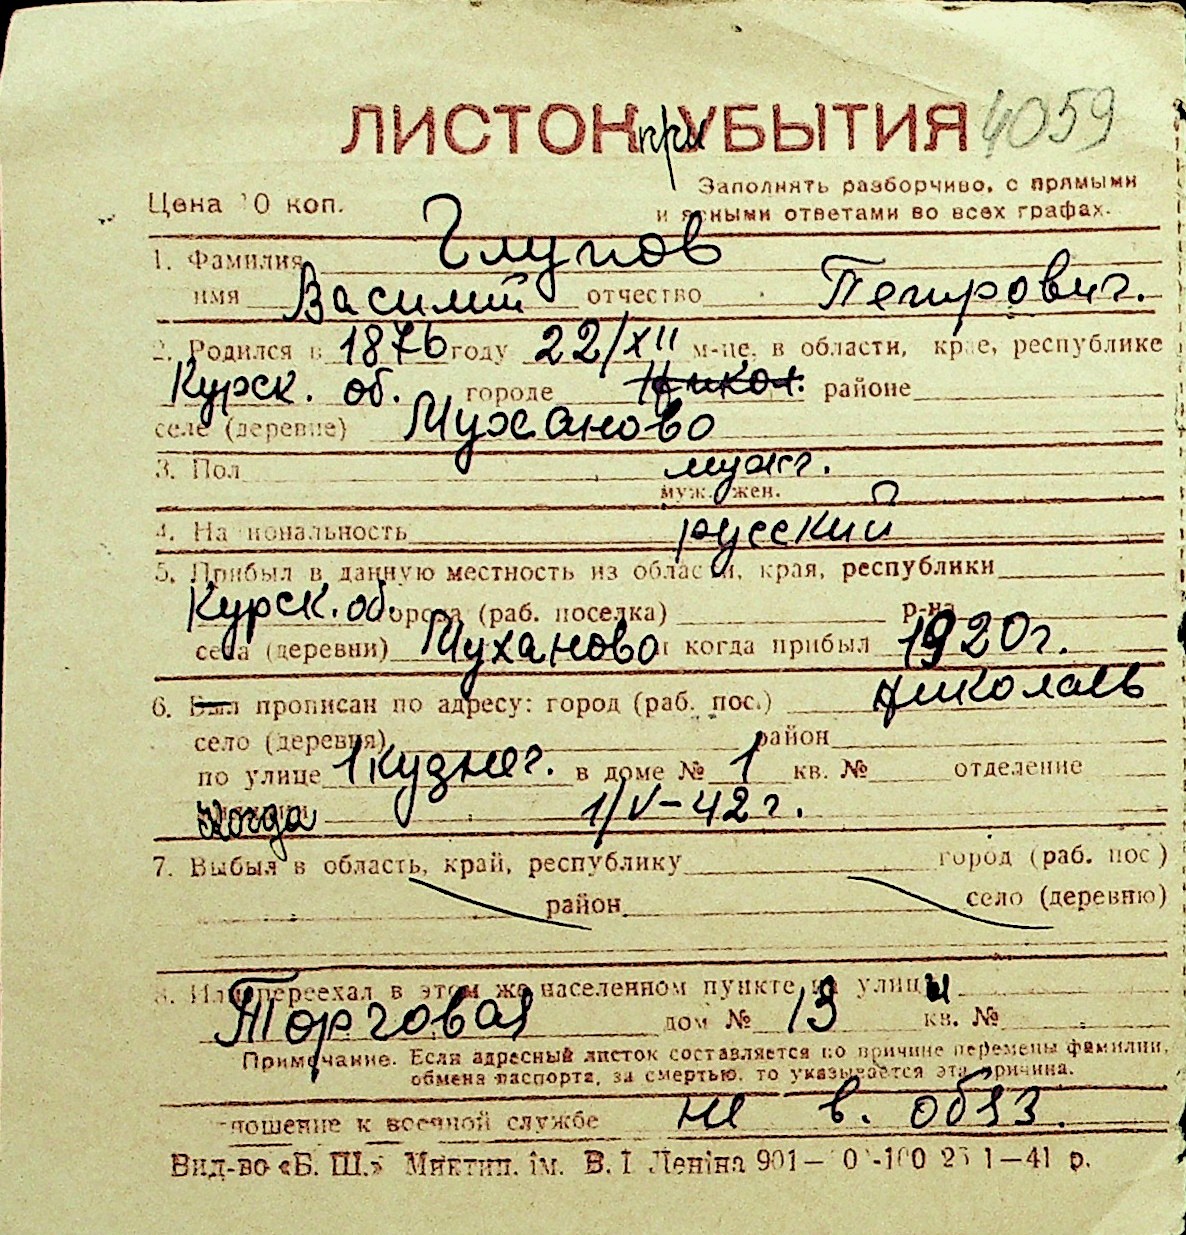 ЛИСТОК при УБЫТИЯ 4059
Заполнять разборчиво, с прямыми
Цена 10 коп. и ясными ответами во всех графах.
1. Фамилия Глупов
имя Василий отчество Петрович.
2. Родился в 1876 году 22/XII м-це, в области, крае, республике
Курск. об. городе Никол. районе
селе (деревне) Муханово
3. Пол мужс.
муж. жен.
4. Национальность русский
5. Прибыл в данную местность из области, края, республики
Курск. об. города (раб. поселка) р-на
села (деревни) Муханово и когда прибыл 1920 г.
6. Был прописан по адресу: город (раб. пос.) Николаев
село (деревня) район
по улице 1 кузнеч. в доме № 1 кв. № отделение
когда 1/V-42 г.
7. Выбыл в область, край, республику город (раб. пос)
район село (деревню)
8. Или переехал в этом же населенном пункте на улицы
Торговая дом № 13 кв. №
Примечание. Если адресный листок составляется по причине перемены фамилии,
обмена паспорта, за смертью, то указывается эта причина.
Отношение к военной службе не в. обяз.
Вид-во «Б. Ш.» Миктип. ім. В. І Леніна 901— 1—41 р.